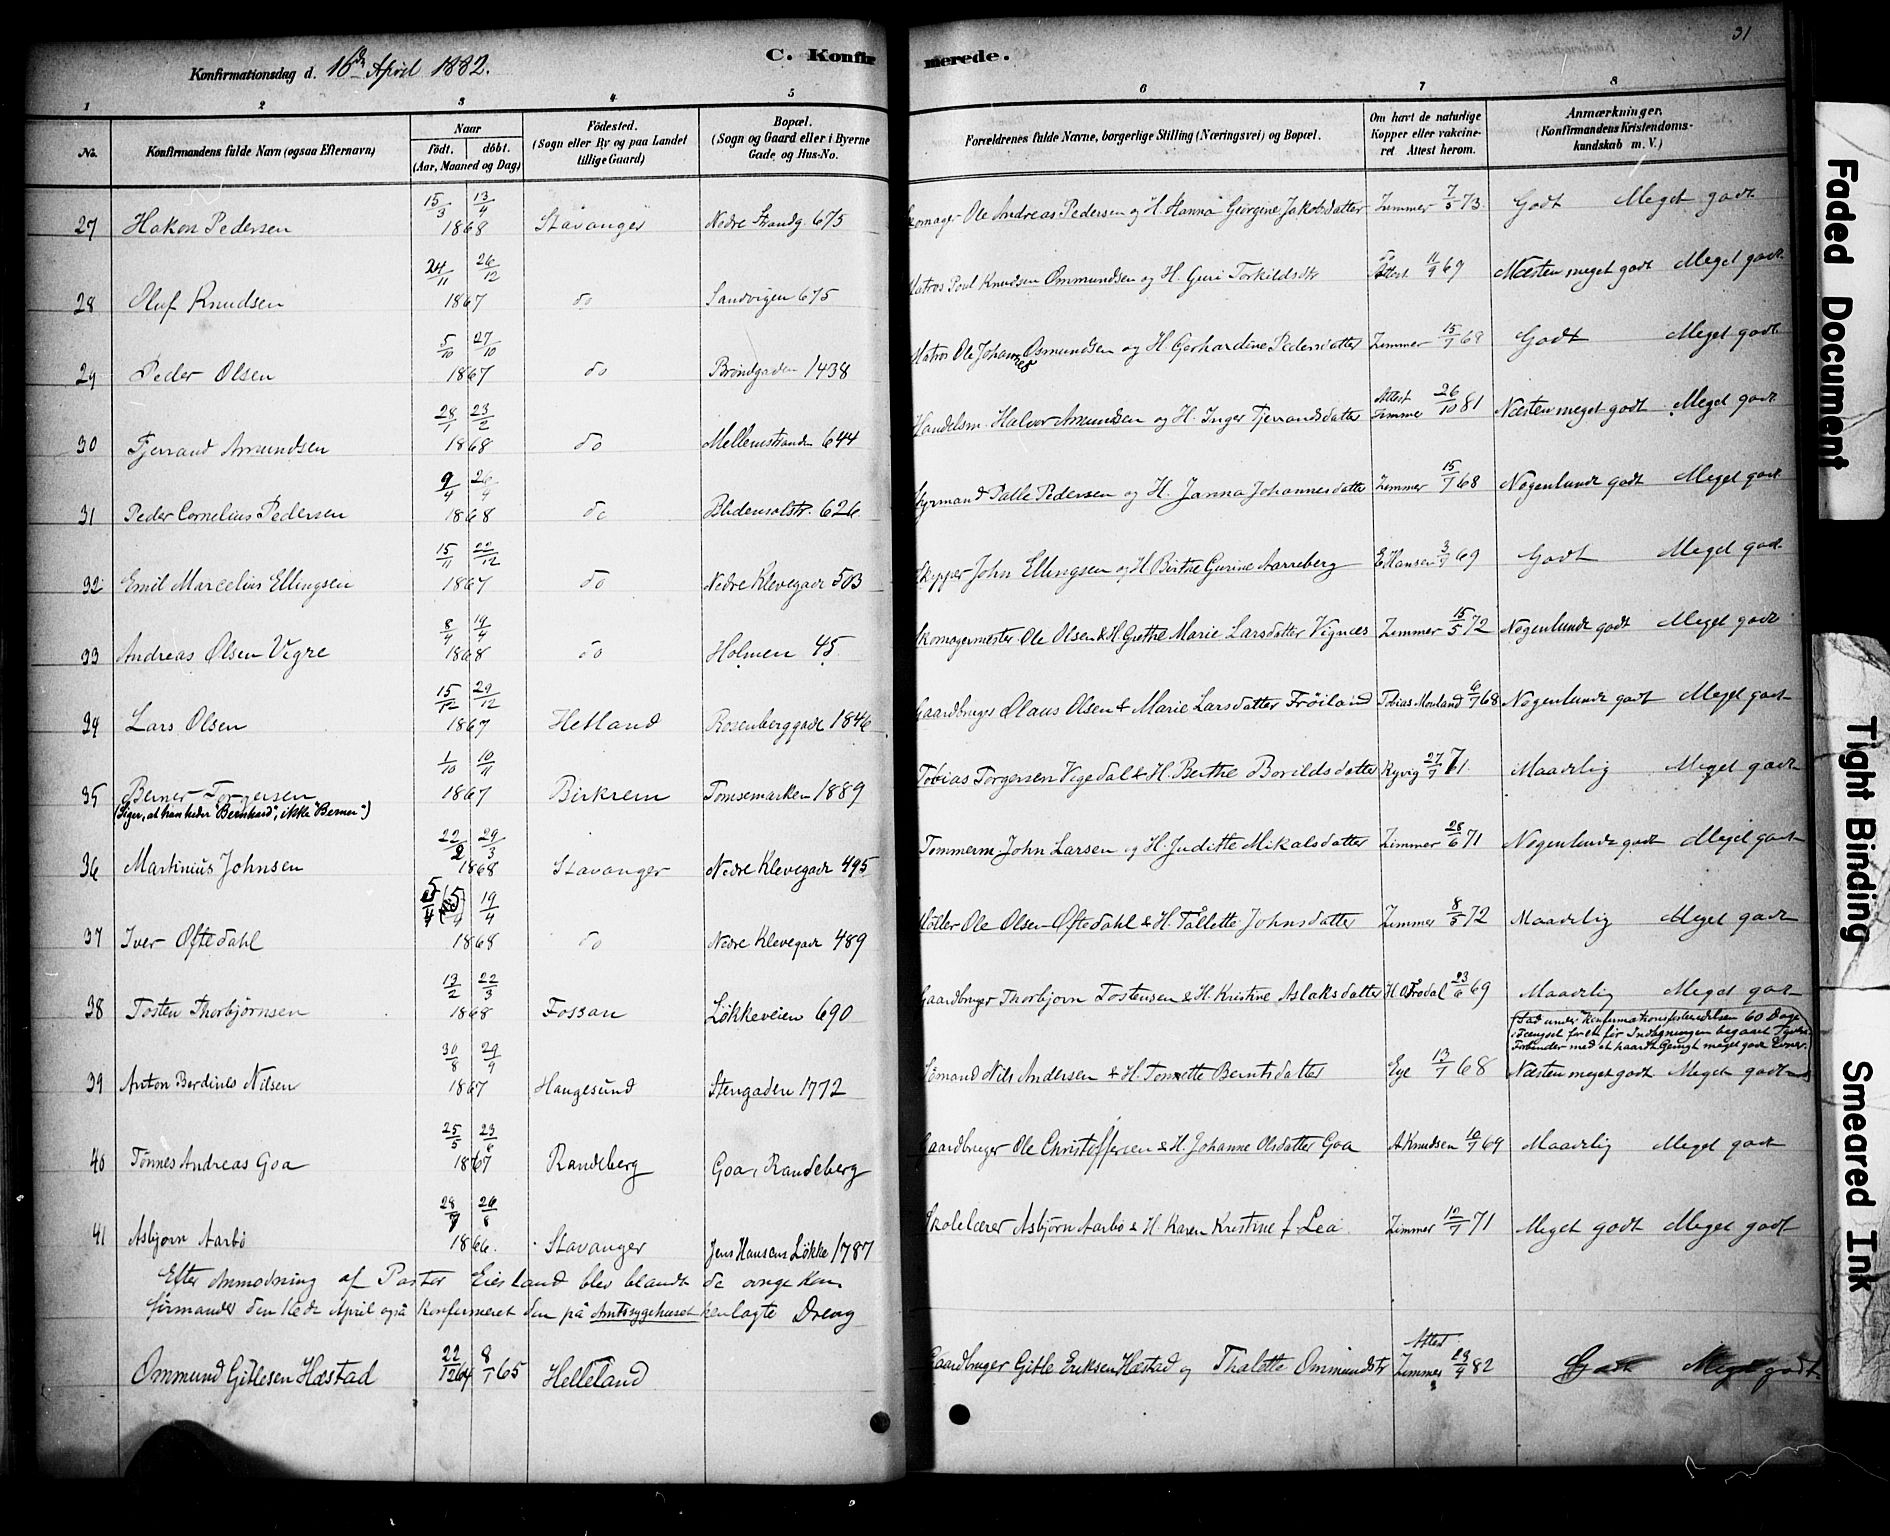 Konfirmationsdag d. 16de April 1882.
C. Konfirmerede.
31
1 2 3 4 5 6 7 8
No. Konfirmandens fulde Navn (ogsaa Efternavn) Naar født. døbt. (Aar, Maaned og Dag) Fødested. (Sogn eller By og paa Landet tillige Gaard) Bopæl. (Sogn og Gaard eller i Byerne Gade og Hus-No. Forældrenes fulde Navne, borgerlige Stilling (Næringsvei) og Bopæl. Om havt de naturlige Kopper eller vakcineret Attest herom. Anmærkninger. (Konfirmandens Kristendomskundskab m. V.)
27 Hakon Pedersen 15/3 13/4 1868 Stavanger Nedre Strandg. 675 Skomager Ole Andreas Pedersen og H. Hanna Georgine Jakobsdatter Zimmer 7/5 73. Godt Meget godt
28 Oluf Knudsen 24/11 26/12 1867 do Sandvigen 675 Matros Poul Knudsen Ommundsen og H. Guri Torkildsdtr Attest 11/9 69 Næsten meget godt Meget godt
29 Peder Olsen 5/10 27/10 1867 do Brøndgaden 1438 Matros Ole Johannes Osmundsen og H. Gerhardine Pedersdatter Zimmer 15/7 68 Godt Meget godt
30 Fjerrand Amundsen 28/1 23/2 1868 do Mellemstranden 644 Handelsm. Halvor Amundsen og H. Inger Fjerrandsdatter Attest Zimmer 26/10 81 Næsten meget godt Meget godt
31 Peder Cornelius Pedersen 9/4 26/4 1868 do Bledensolstr. 626 Styrmand Palle Pedersen og H. Janna Johannesdatter Zimmer 15/7 68 Nogenlunde godt Meget godt
32 Emil Marcelius Ellingsen 15/11 22/12 1867 do Nedre Klevegade 503 Skipper John Ellingsen og H. Birthe Gurine Aarreberg E Hansen 3/9 69 Godt Meget godt
33 Andreas Olsen Vigre 8/4 19/4 1868 do Holmen 45 Skomagermester Ole Olsen & H. Grethe Marie Larsdatter Vignæs Zimmer 15/5 72 Nogenlunde godt Meget godt
34 Lars Olsen 15/12 29/12 1867 Hetland Rosenberggade 1846 Gaardbruger Olaus Olsen & Marie Larsdatter Frøiland Tobias Monland 6/7 68 Nogenlunde godt Meget godt
35 Berner Torgersen 1/10 10/11 1867 Birkrem Tomsemarken 1889 Tobias Torgersen Vegedal & H. Berthe Borildsdatter Ryvig 27/7 71. Maadelig Meget godt
(Siger, at han heder "Bernhard", ikke "Berner")
36 Martinius Johnsen 22/2 29/3 1868 Stavanger Nedre Klevegade 495 Tømmerm. John Larsen og H. Juditte Mikalsdatter Zimmer 28/6 71 Nogenlunde godt Meget godt
37 Iver Oftedahl 5/4 19/4 1868 do Nedre Klevegade 489 Møller Ole Olsen Oftedahl & H. Tallette Johnsdatter Zimmer 8/5 72 Maadelig Meget godt
38 Tosten Thorbjørnsen 13/2 22/3 1868 Fossan Løkkeveien 690 Gaardbruger Thorbjorn Tostensen & H. Kristine Aslaksdatter 23/6 69 Maadelig Meget godt
(Sad under Konfirmationsforberedelsen 60 Dage i Fængsel for et før Indtagningen begaaet Tyveri. Forbinder med et haardt Gemyt meget gode Evner.
39 Anton Berdines Nilsen 30/8 29/9 1867 Haugesund Stengaden 1772 Sømand Nils Andersen & H. Tonette Berntsdatter Eye 13/7 68 Næsten meget godt Meget godt
40 Tønnes Andreas Goa 25/5 23/6 1867 Randeberg Goa, Randeberg Gaardbruger Ole Christoffersen & H. Johanne Olsdatter Goa A Knudsen 10/7 69 Maadelig Meget godt
41 Asbjørn Aarbø 28/7 26/8 1866. Stavanger Jens Hansens Løkke 1787 Skolelærer Asbjørn Aarbø & H. Karen Kristine f. Lea Zimmer 10/7 71 Meget godt Meget godt
Efter Anmodning af Pastor Eiesland blev blandt de øvrige Kon-
firmander den 16de April også konfirmeret den på Amtssygehuset henlagte Dreng
Ommund Gitlesen Hæstad 22/12 64 8/1 65 Helleland Gaardbruger Gitle Eriksen Hæstad og Thalette Ommundsdtr Attest Zimmer 29/4 82 Godt Meget godt
Faded Document
Tight Binding
Smeared Ink